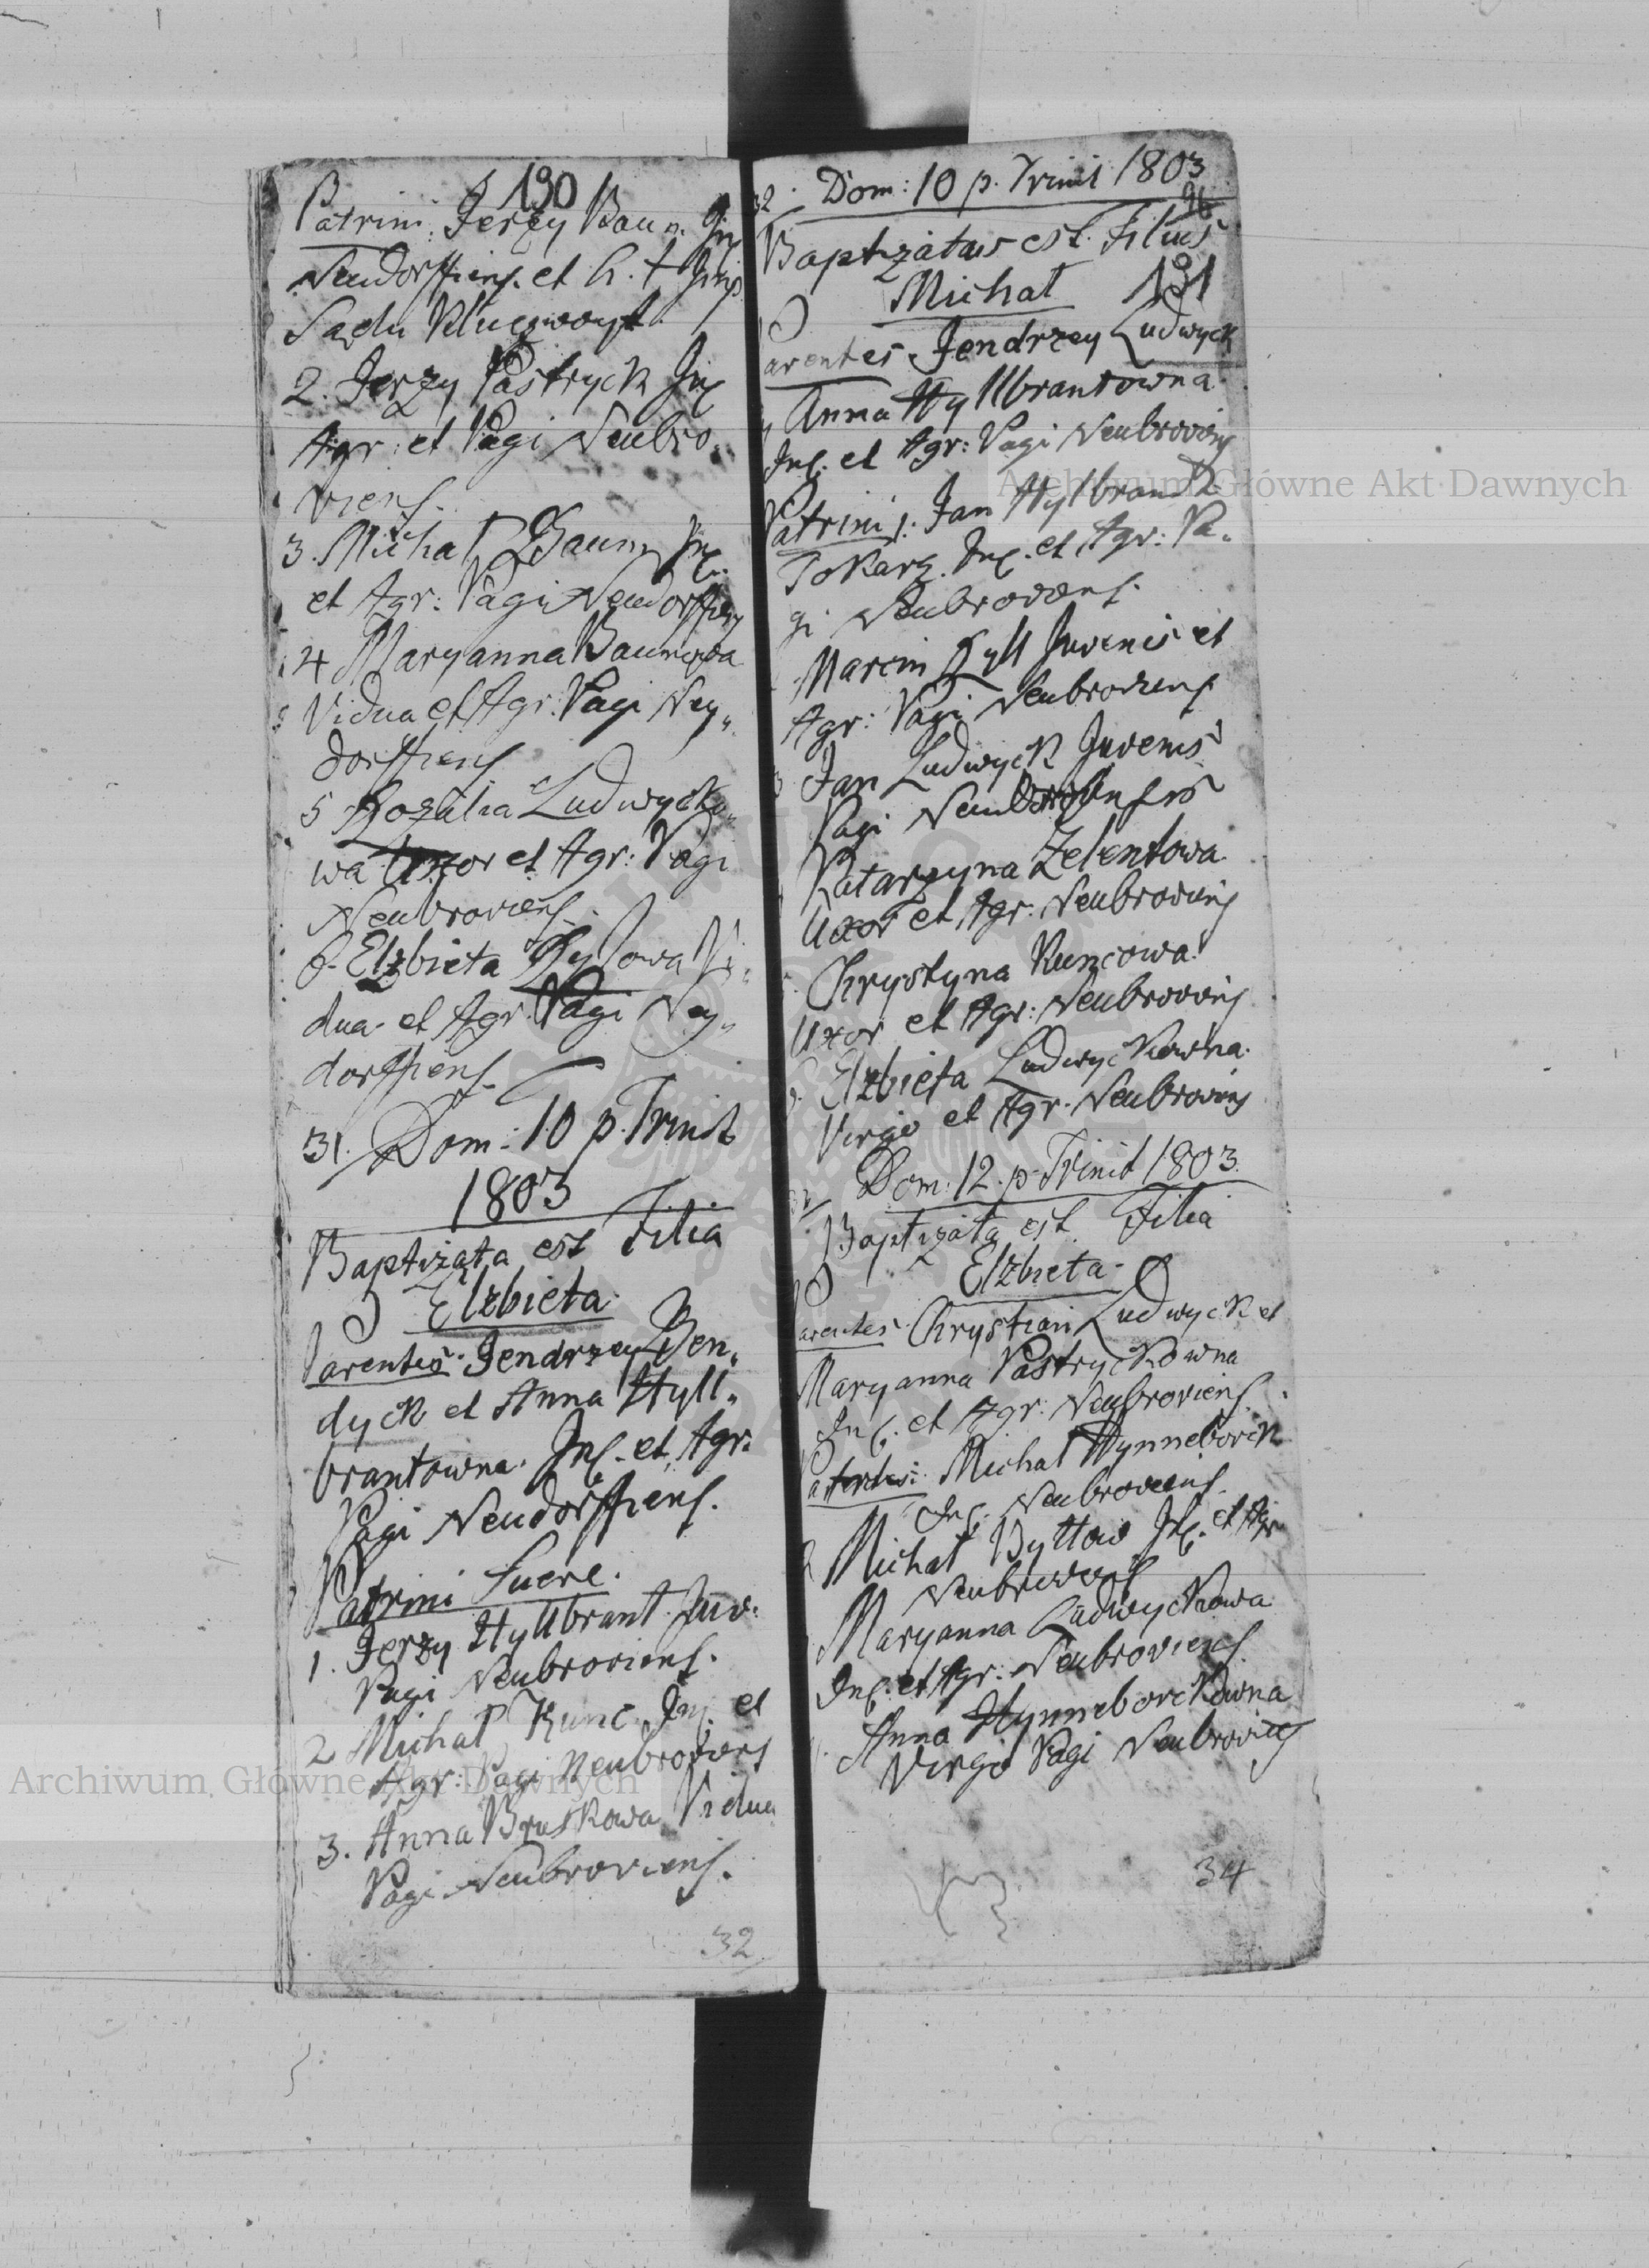 190
Patrini: Jerzy Baum. Inq
Neudorffiens. et h. t.
Sądu
2. Jerzy Pastryck Inq
Agr: et Pagi Neubro„
viens.
3. Michał Baum Inq.
et Agr: Pagi Neudorffiens
4 Maryanna Baumowa
Vidua et Agr: Pagi Ney„
dorffiens
5 Rozalia Ludwycko„
wa Uxor et Agr: Pagi
Neubroviens.
6. Elzbieta Ryllowa Vi„
dua et Agr. Pagi Ney„
dorffiens.
31. Dom: 10 p. Trinit
1803
Baptizata est Filia
Elzbieta
Parentes. Jendrzey Ben„
dyck et Anna Hyll„
brantowna. Inq. et Agr.
Pagi Neudorffiens.
Patrini fuere.
1. Jerzy Hyllbrant Juv.
Pagi Neubroviens.
2 Michał Kunc. Inq. et
Agr: Pagi Neubroviens
3. Anna Bruskowa Vidua
Pagi Neubroviens.
32
32. Dom: 10 p. Trinit 1803
96
Baptizatus est Filius
Michał 191
Parentes Jendrzey Ludwyck
Anna Hyllbrantowna
Inq. et Agr: Pagi Neubroviens
Patrini 1. Jan Hyllbrandt
Tokarz. Inq. et Agr: Pa„
gi Neubroviens.
Marcin Ryll Juvenis et
Agr: Pagi Neubroviens
Jan Ludwyck Juvenis
Pagi
Katarzyna Zelentowa
Uxor et Agr: Neubroviens
Chrystyna Kuncowa
Uxor et Agr: Neubroviens
Elzbieta Ludwyckowna
Virgo et Agr. Neubroviens
Dom: 12. p. Trinit 1803.
Baptizata est Filia
Elzbieta
Parentes Chrystian Ludwyck et
Maryanna Pastryckowna
Inq. et Agr: Neubroviens.
Michał Hynneborck
Inq. Neubroviens.
2 Michał Byttow Inq. et Agr
Neubroviens
Maryanna Ludwyckowa
Inq. et Agr: Neubroviens
Anna Hynneborckowna
Virgo Pagi Neubroviens
34
Archiwum Główne Akt Dawnych
Archiwum Główne Akt Dawnych